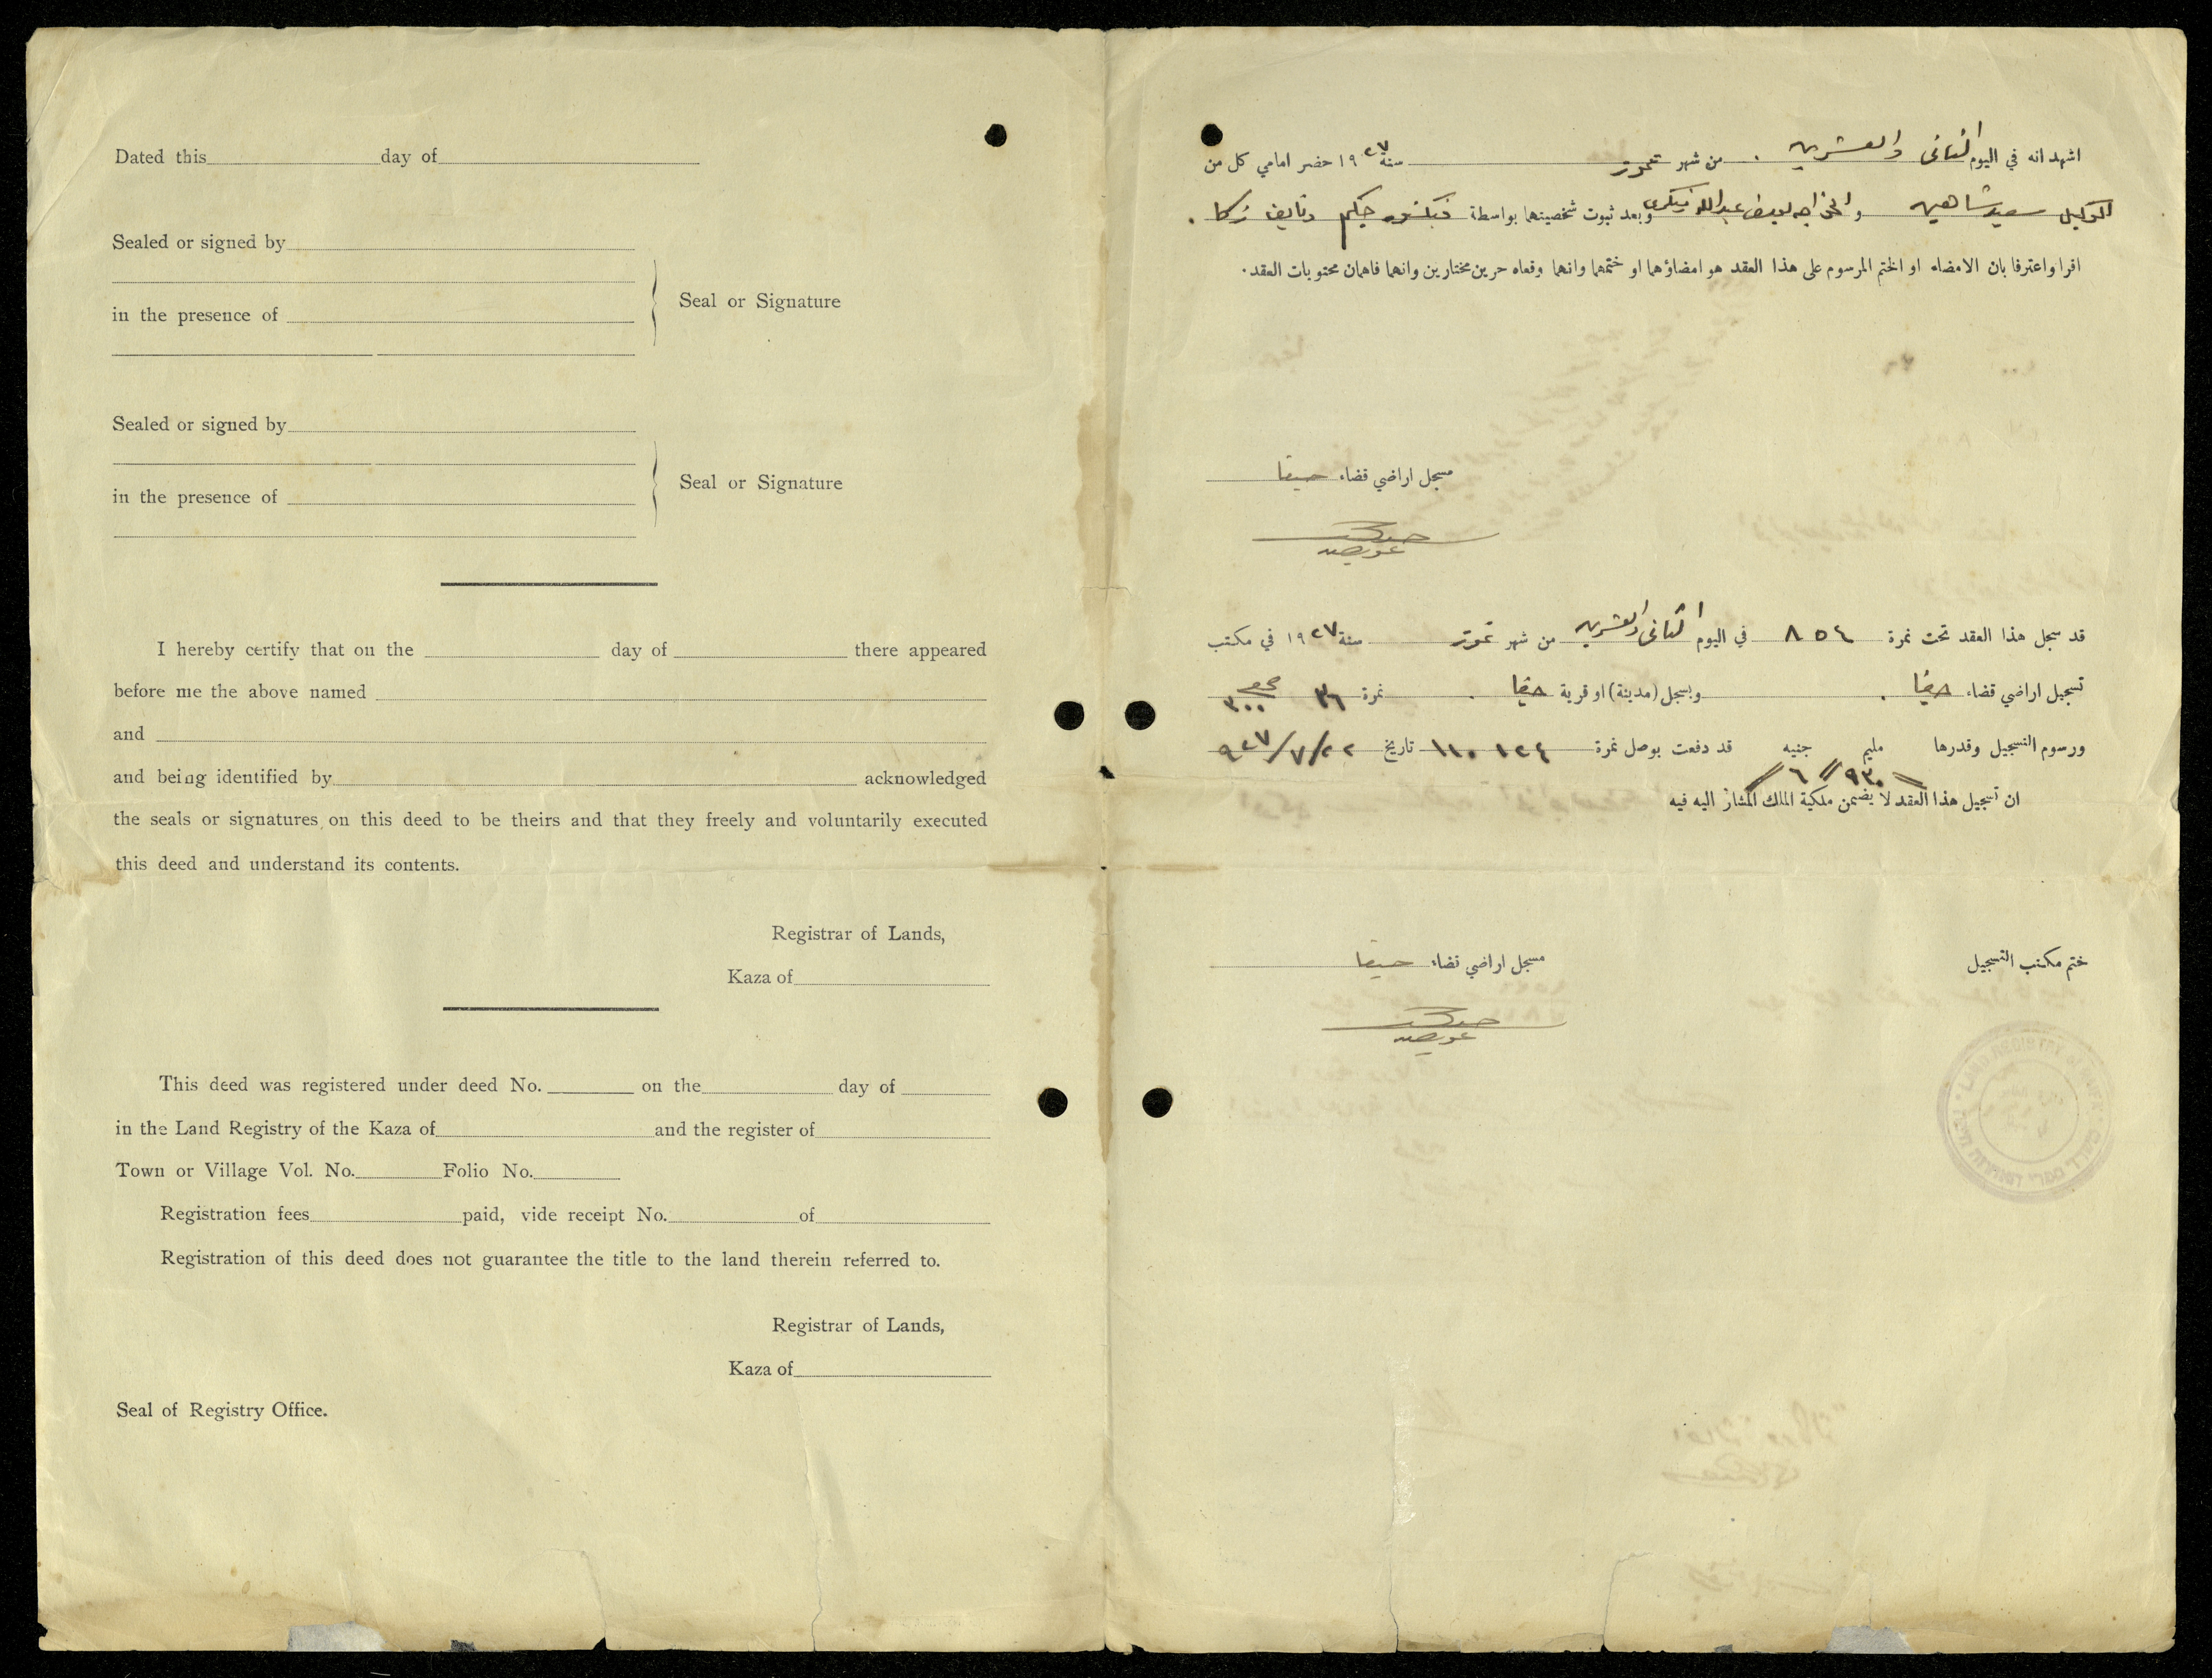 Dated this day of
Sealed or signed by
in the presence of
Seal or Signature
Sealed or signed by
in the presence of
Seal or Signature
I hereby certify that on the day of there appeared
before me the above named
and
and being identified by acknowledged
the seals or signatures on this deed to be theirs and that they freely and voluntarily executed
this deed and understand its contents.
Registrar of Lands,
Kaza of
This deed was registered under deed No. on the day of
in the Land Registry of the Kaza of and the register of
Town or Village Vol. No. Folio No.
Registration fees paid, vide receipt No. of
Registration of this deed does not guarantee the title to the land therein referred to.
Registrar of Lands,
Kaza of
Seal of Registry Office.
اشهد انه في اليوم الثاني والعشرين من شهر تموز سنة ١٩٢٧ حضر امامي كل من
الوكيل سعيد شاهين و الخواجه عبدالله وبعد ثبوت شخصيتهما بواسطة حكيم ونايف زكا
اقرا واعترفا بان الامضاء او الختم المرسوم على هذا العقد هو امضاؤهما او ختمهما وانهما وقعاه حرين مختارين وانهما فاهمان محتويات العقد.
مسجل اراضي قضاء حيفا
قد سجل هذا العقد تحت نمرة ٨٥٤ في اليوم الثاني والعشرين من شهر تموز سنة ١٩٢٧ في مكتب
تسجيل اراضي قضاء حيفا وبسجل (مدينة) او قرية حيفا نمرة ٣٦ ٣٠٠
ورسوم التسجيل وقدرها مليم جنيه قد دفعت بوصل نمرة ١١٠١٢٤ تاريخ ٩٢٧/٧/٢٢
٩٣٠ // ٦ //
ان تسجيل هذا العقد لا يضمن ملكية الملك المشار اليه فيه
ختم مكتب التسجيل
مسجل اراضي قضاء حيفا
LAND REGISTRY OF HAIFA